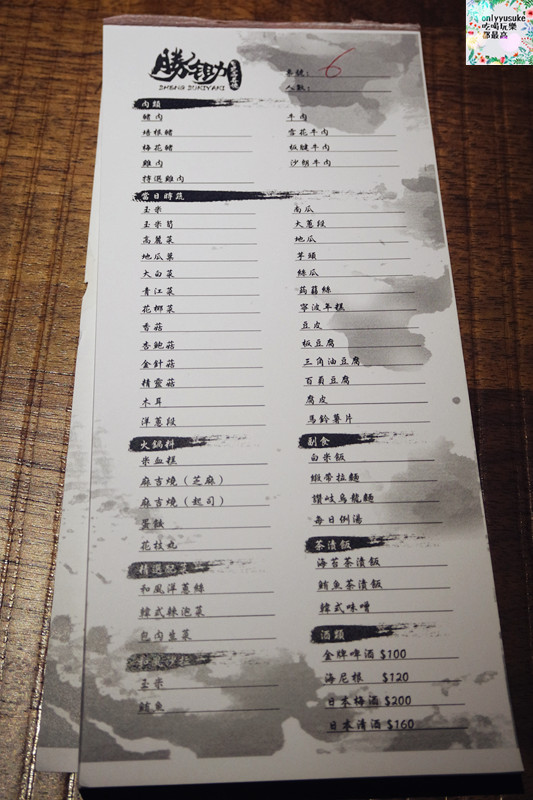 onlyyusuke
吃喝玩樂
部最高
勝鋤
SHENG SUKIYAKI
桌號： 6
人數：
肉類
豬肉
培根豬
梅花豬
雞肉
特選雞肉
牛肉
雪花牛肉
板腱牛肉
沙朗牛肉
當日時蔬
玉米
玉米筍
高麗菜
地瓜葉
大白菜
青江菜
花椰菜
香菇
杏鮑菇
金針菇
精靈菇
木耳
洋蔥段
南瓜
大蔥段
地瓜
芋頭
絲瓜
蒟蒻絲
寧波年糕
豆皮
板豆腐
三角油豆腐
百頁豆腐
腐皮
馬鈴薯片
火鍋料
米血糕
麻吉燒（芝麻）
麻吉燒（起司）
蛋餃
花枝丸
精選
和風洋蔥絲
韓式辣泡菜
包肉生菜
玉米
鮪魚
副食
白米飯
緞帶拉麵
讚岐烏龍麵
每日例湯
茶漬飯
海苔茶漬飯
鮪魚茶漬飯
韓式味噌
酒類
金牌啤酒 $100
海尼根 $120
日本梅酒 $200
日本清酒 $160